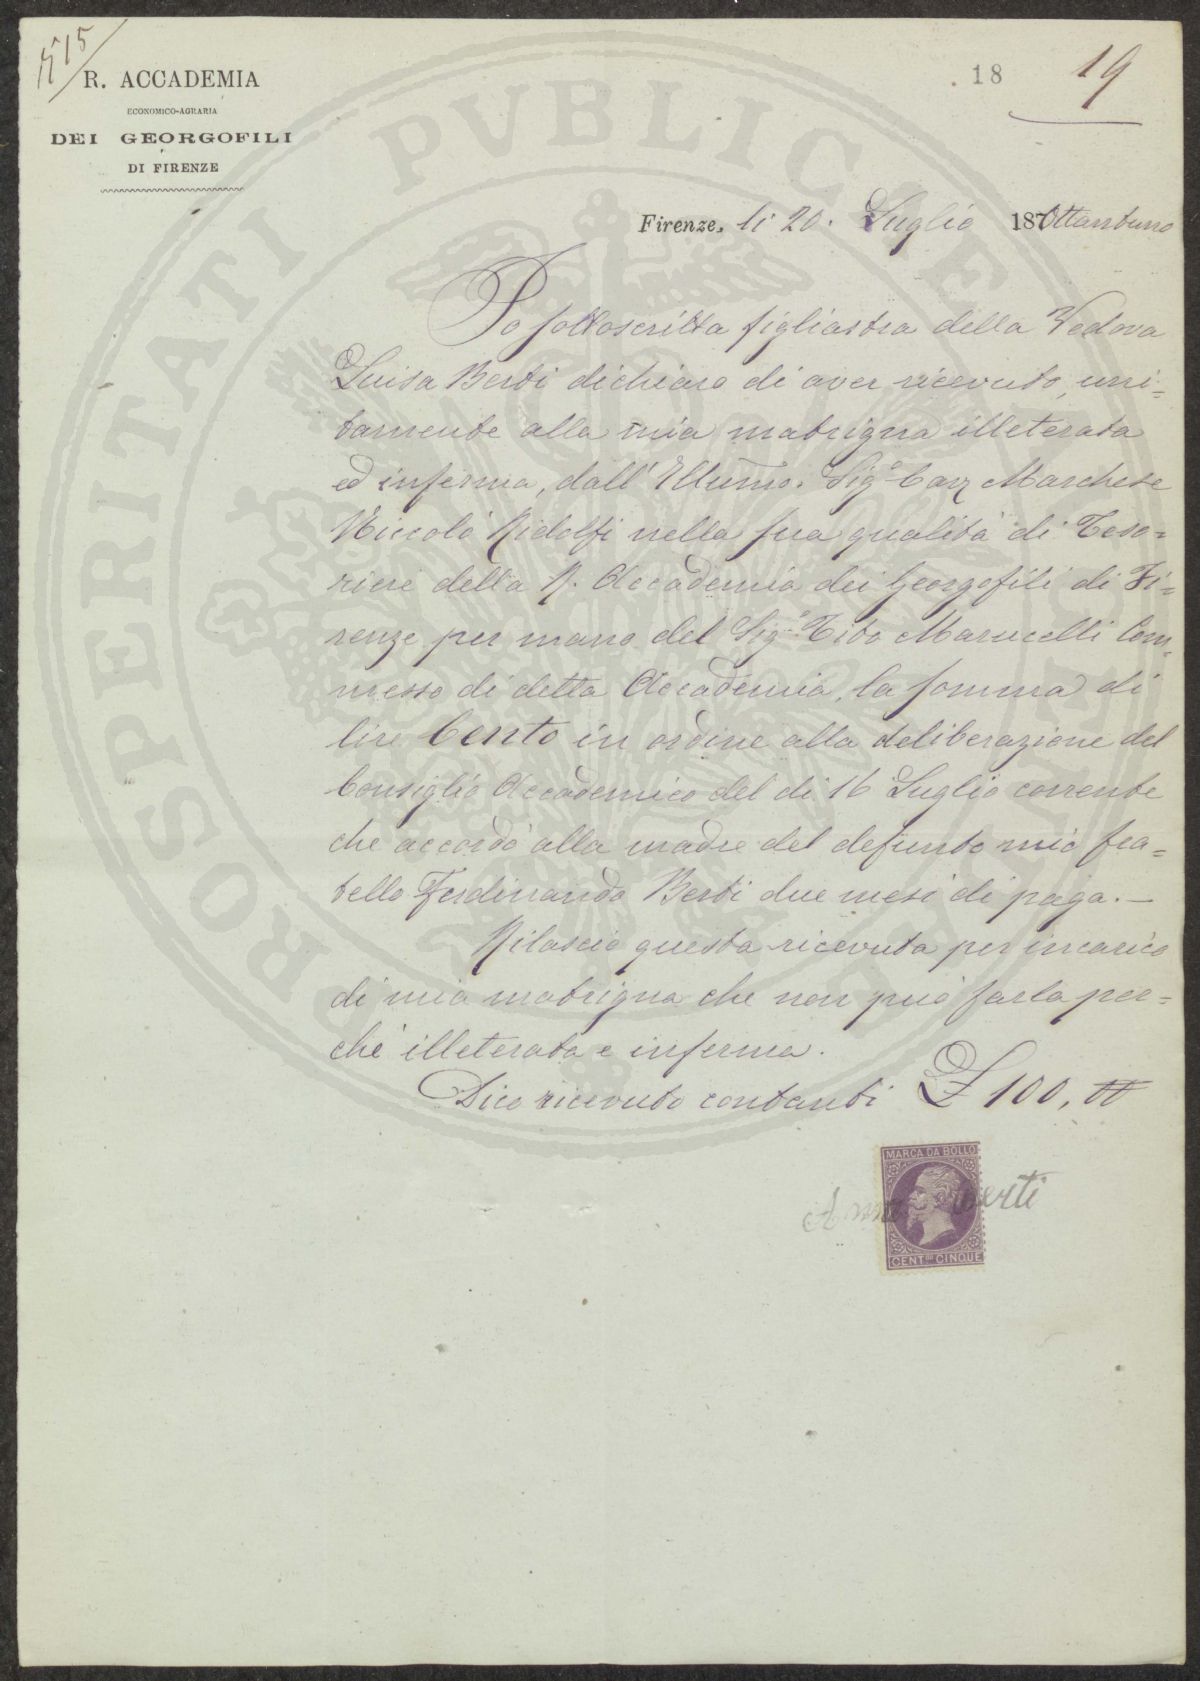 515
R. ACCADEMIA
ECONOMICO-AGRARIA
DEI GEORGOFILI
DI FIRENZE
18
19
Firenze, li 20. Luglio 187Ottantuno
Io sottoscritta figliastra della Vedova
Luisa Berti dichiaro di aver ricevuto, uni=
tamente alla mia matrigna illeterata
ed inferma, dall' Illumo. Sigr Cav Marchese
Niccolò Ridolfi nella sua qualità di Teso=
riere della R. Accademia dei Georgofili di Fi=
renze per mano del Sigr Tito Marucelli Com=
messo di detta Accademia, la somma di
lire Cento in ordine alla deliberazione del
Consiglio Accademico del di 16 Luglio corrente
che accordò alla madre del defunto mio fra=
tello Ferdinando Berti due mesi di paga. —
Rilascio questa ricevuta per incarico
di mia matrigna che non può farla per=
chè illeterata e inferma.
Dico ricevuto contanti £ 100,
Anna Berti
MARCA DA BOLLO
CENT.MI CINQUE
PROSPERITATI PVBLICAE